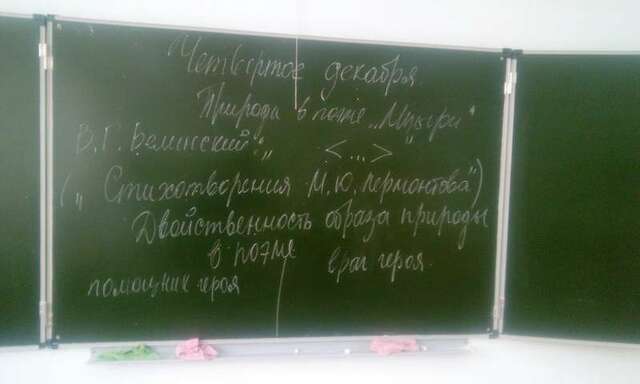 Четвертое декабря.
Природа в поэме „Мцыри"
В.Г. Белинский: „ <...> "
(„Стихотворения М.Ю. Лермонтова")
Двойственность образа природы
в поэме
помощник героя
враг героя.